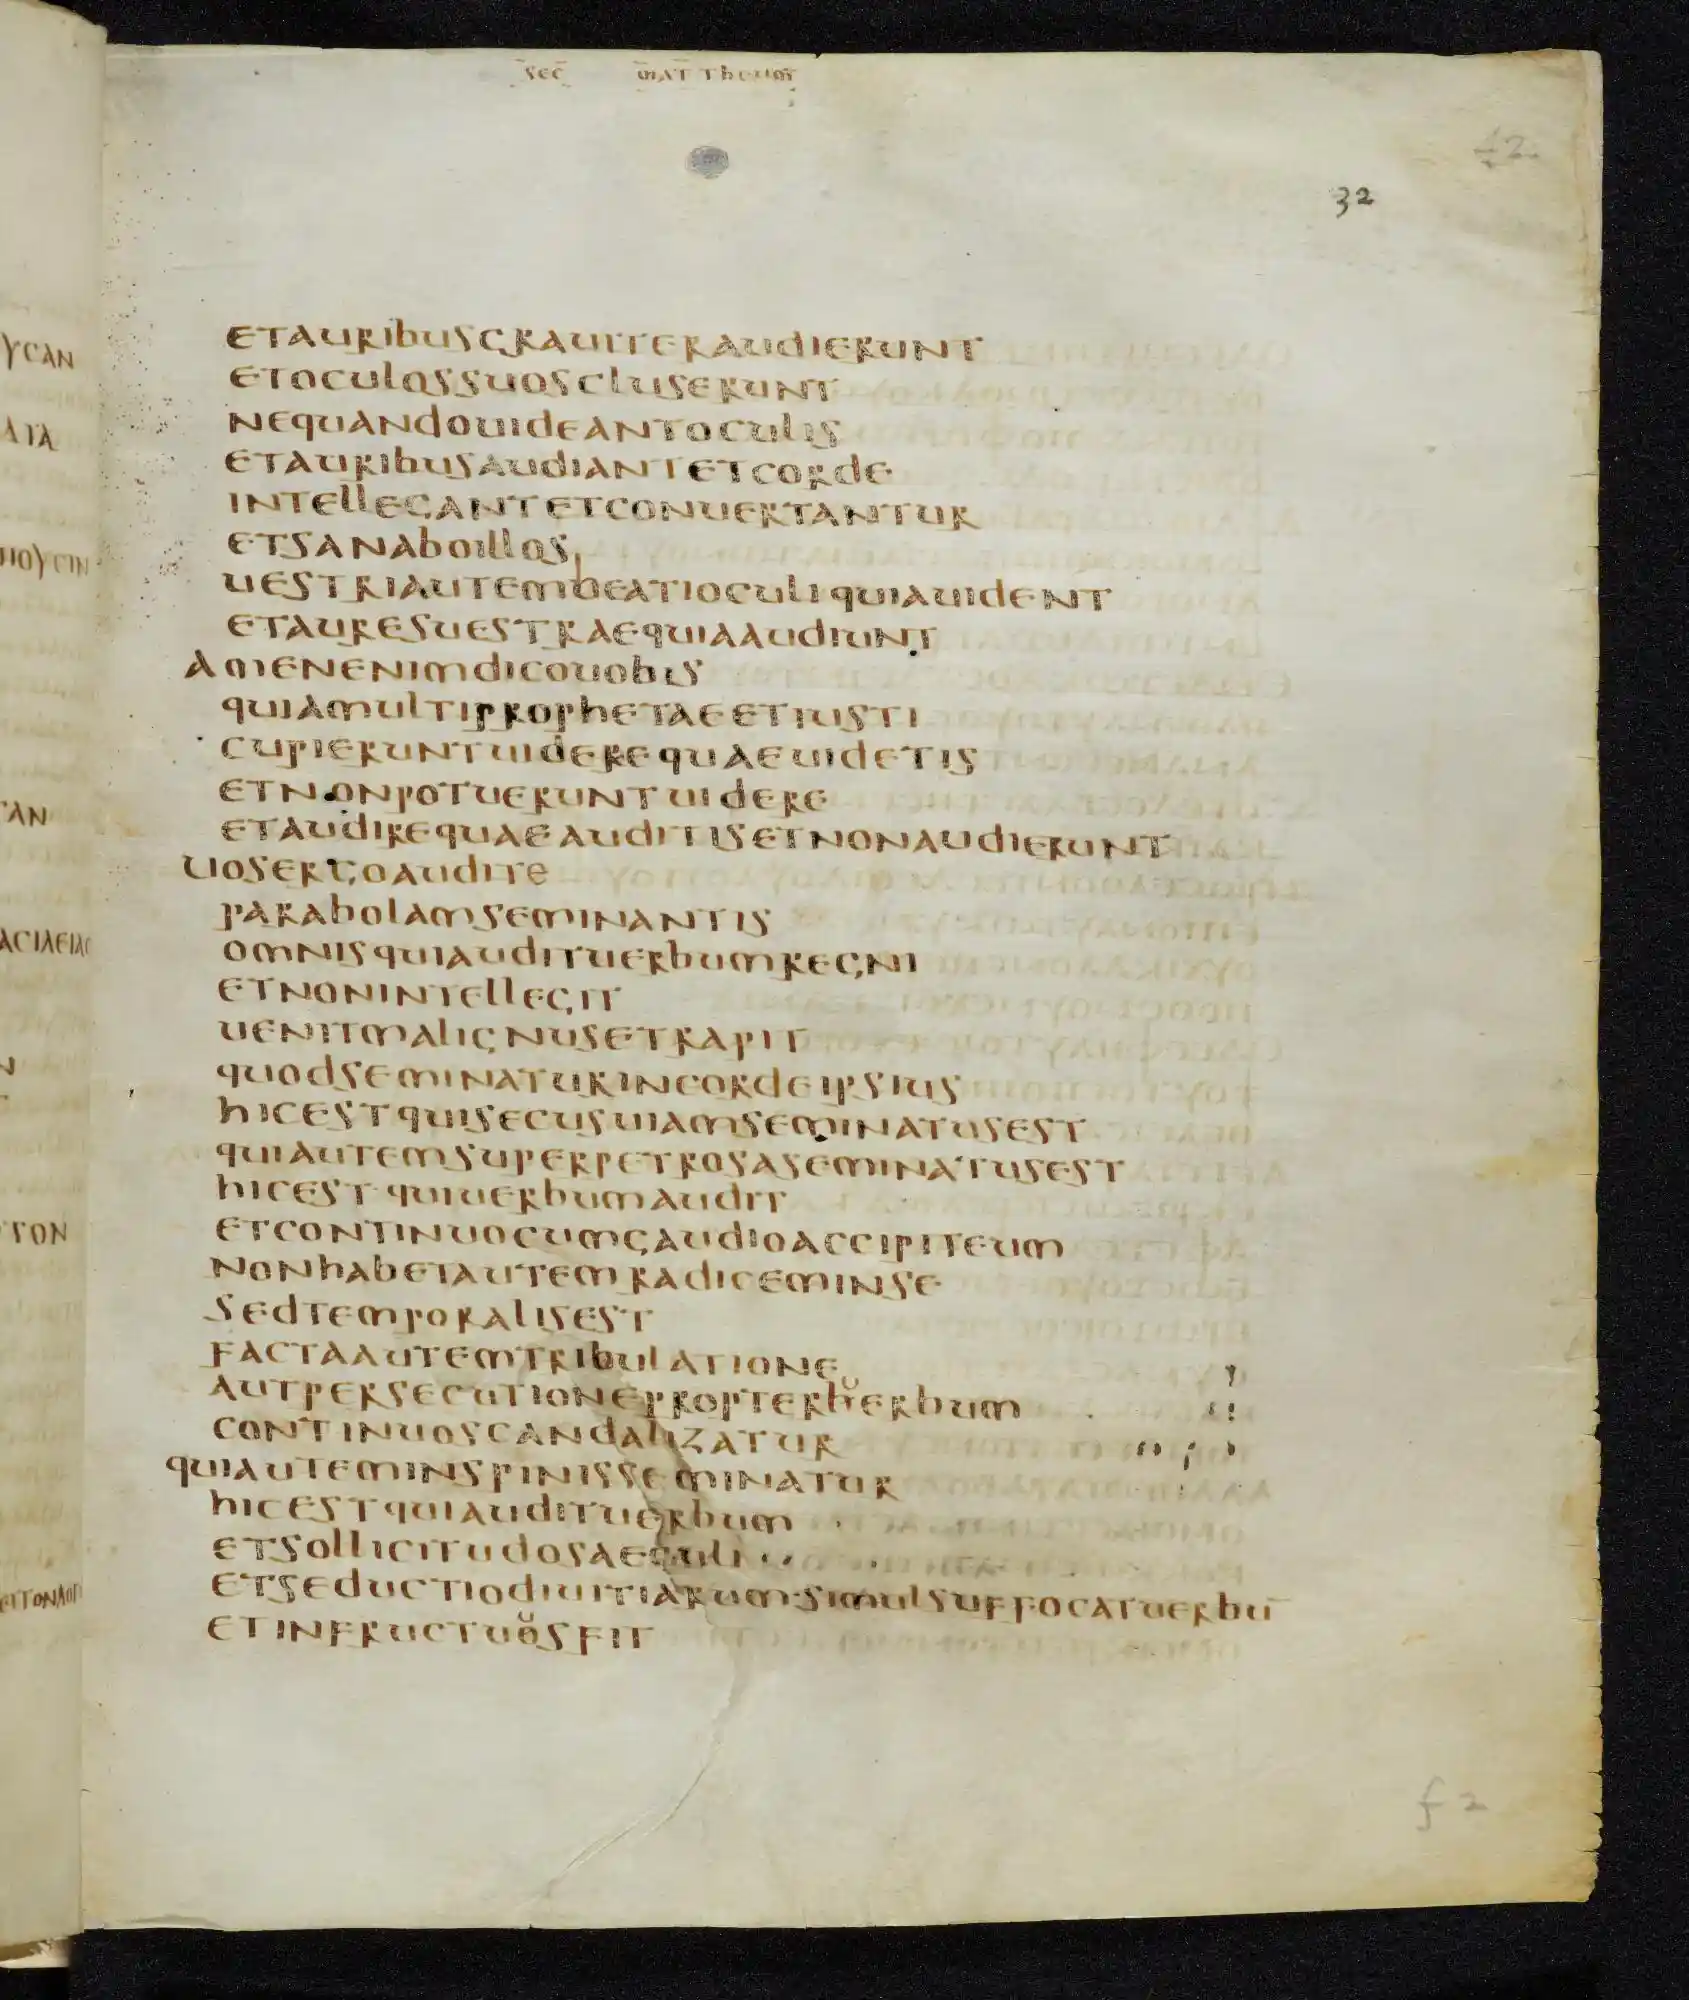 SEC MATTHEUM
f2
32
ETAURIBUSGRAUITERAUDIERUNT
ETOCULOSSUOSCLUSERUNT
NEQUANDOUIDEANTOCULIS
ETAURIBUSAUDIANTETCORDE
INTELLEGANTETCONUERTANTUR
ETSANABOILLOS
UESTRIAUTEMBEATIOCULIQUIAUIDENT
ETAURESUESTRAEQUIAAUDIUNT
AMENENIMDICOUOBIS
QUIAMULTIPROPHETAEETIUSTI
CUPIERUNTUIDEREQUAEUIDETIS
ETNONPOTUERUNTUIDERE
ETAUDIREQUAEAUDITISETNONAUDIERUNT
UOSERGOAUDITE
PARABOLAMSEMINANTIS
OMNISQUIAUDITUERBUMREGNI
ETNONINTELLEGIT
UENITMALIGNUSETRAPIT
QUODSEMINATURINCORDEIPSIUS
HICESTQUISECUSUIAMSEMINATUSEST
QUIAUTEMSUPERPETROSASEMINATUSEST
HICESTQUIUERBUMAUDIT
ETCONTINUOCUMGAUDIOACCIPITEUM
NONHABETAUTEMRADICEMINSE
SEDTEMPORALISEST
FACTAAUTEMTRIBULATIONE
AUTPERSECUTIONEPROPTERUERBUM
CONTINUOSCANDALIZATUR
QUIAUTEMINSPINISSEMINATUR
HICESTQUIAUDITUERBUM
ETSOLLICITUDOSAECULI
ETSEDUCTIODIUITIARUM·SIMULSUFFOCATUERBU̅
ETINFRUCTUOSFIT
f2